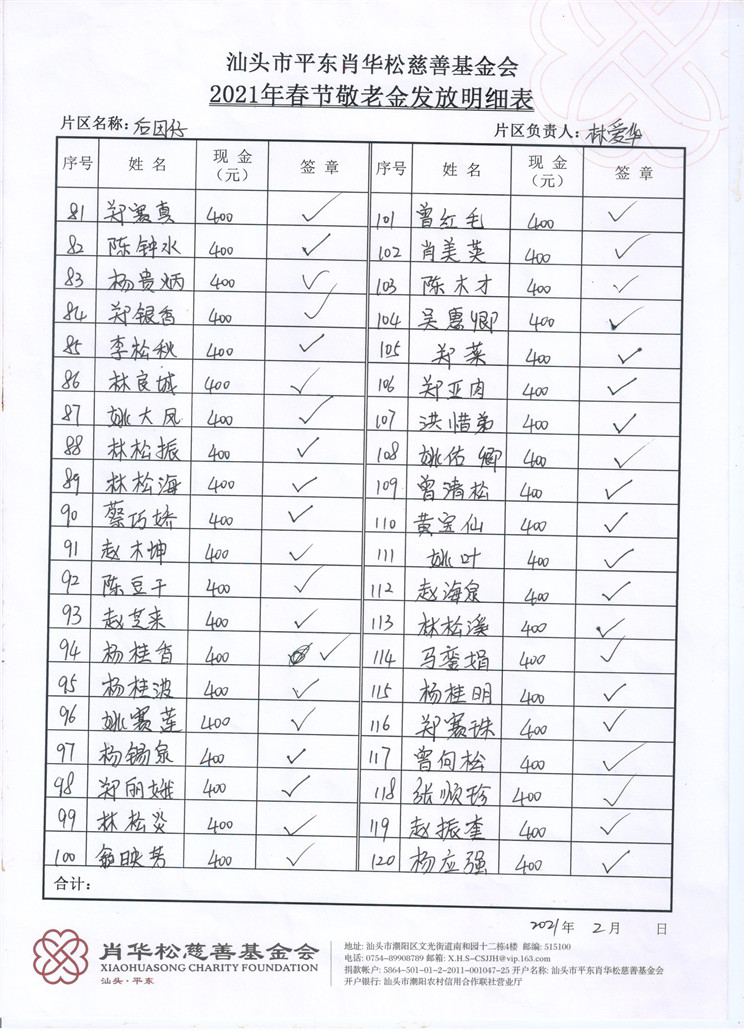 汕头市平东肖华松慈善基金会
2021年春节敬老金发放明细表
片区名称：后田仔 片区负责人：林爱华
序号 姓名 现金（元） 签章 序号 姓名 现金（元） 签章
81 郑赛真 400 ✓ 101 曾红毛 400 ✓
82 陈钟水 400 ✓ 102 肖美英 400 ✓
83 杨贵炳 400 ✓ 103 陈木才 400 ✓
84 郑银香 400 ✓ 104 吴惠卿 400 ✓
85 李松秋 400 ✓ 105 郑菜 400 ✓
86 林良城 400 ✓ 106 郑亚肉 400 ✓
87 姚大凤 400 ✓ 107 洪惜弟 400 ✓
88 林松振 400 ✓ 108 姚佑卿 400 ✓
89 林松海 400 ✓ 109 曾清松 400 ✓
90 蔡巧娇 400 ✓ 110 黄宝仙 400 ✓
91 赵木坤 400 ✓ 111 姚叶 400 ✓
92 陈豆干 400 ✓ 112 赵海泉 400 ✓
93 赵芝来 400 ✓ 113 林松溪 400 ✓
94 杨桂香 400 ✓ 114 马銮娟 400 ✓
95 杨桂波 400 ✓ 115 杨桂明 400 ✓
96 姚赛莲 400 ✓ 116 郑赛珠 400 ✓
97 杨锡泉 400 ✓ 117 曾向松 400 ✓
98 郑丽娥 400 ✓ 118 张顺珍 400 ✓
99 林松炎 400 ✓ 119 赵振奎 400 ✓
100 映芳 400 ✓ 120 杨应强 400 ✓
合计：
2021年 2月 日
肖华松慈善基金会
XIAOHUASONG CHARITY FOUNDATION
汕头·平东
地址: 汕头市潮阳区文光街道南和园十二栋4楼 邮编: 515100
电话: 0754-89908789 邮箱: X.H.S-CSJJH@vip.163.com
捐款帐户: 5864-501-01-2-2011-001047-25 开户名称: 汕头市平东肖华松慈善基金会
开户银行: 汕头市潮阳农村信用合作联社营业厅